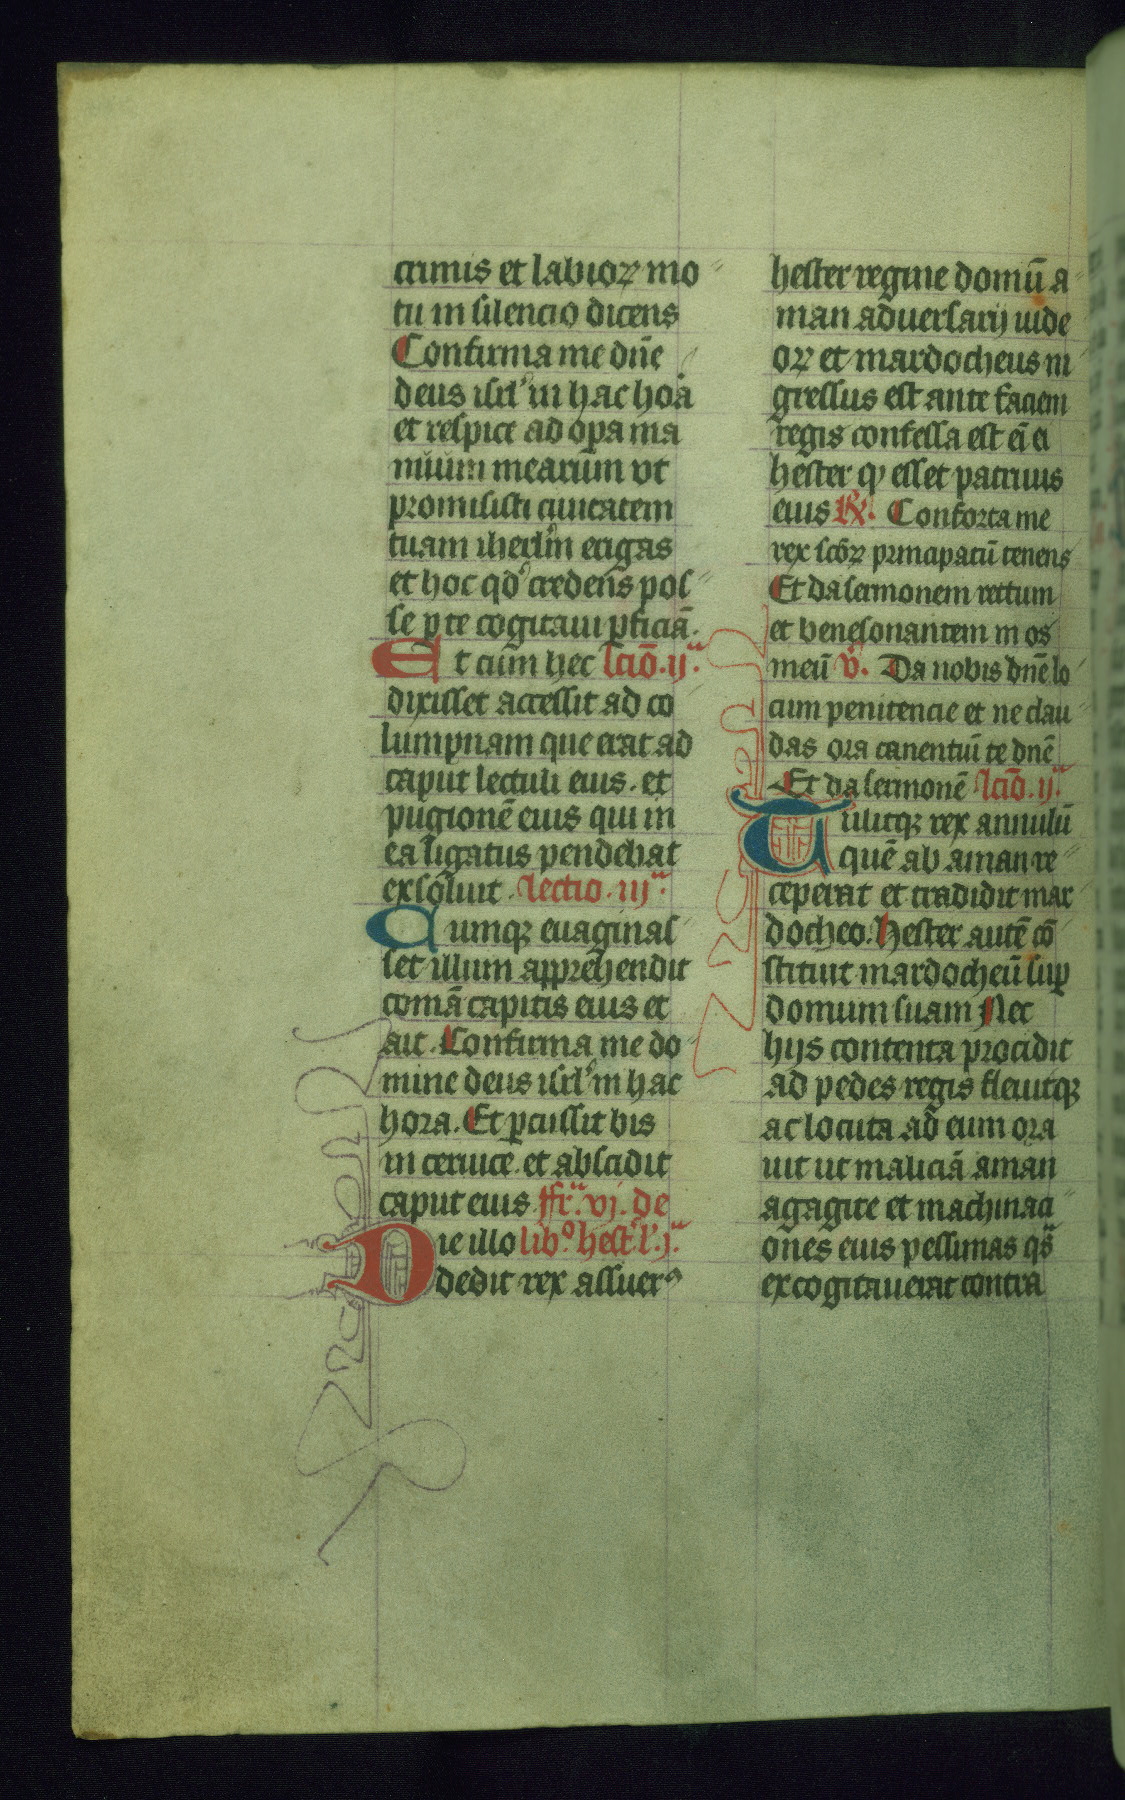 crimis et labioꝝ mo
tu in silencio dicens
Confirma me dn̄e
deus isrl' in hac hora
et respice ad oꝑa ma
nuum mearum vt
promisisti ciuitatem
tuam iherl'm erigas
et hoc qd' credens pos
se ꝑ te cogitaui ꝑficiā.
Et cum hec lcīo. ij.ᵃ
dixisset accessit ad co
lumpnam que erat ad
caput lectuli eius. et
pugionē eius qui in
ea ligatus pendebat
exsoluit. lectio. iij.ᵃ
Cumqꝫ euaginas
set illum apprehendit
comā capitis eius et
ait. Confirma me do
mine deus isrl' in hac
hora. Et ꝑcussit bis
in ceruice. et abscidit
caput eius. ffr.ᵃ vj. de
Die illo lib.º hest' l'. j.ᵃ
dedit rex assuerꝰ
hester regine domū a
man aduersarij iude
oꝝ et mardocheus in
gressus est ante faciem
regis confessa est eī ei
hester qͥ esset patruus
eius R̸. Conforta me
rex sc̄oꝝ principatū tenens
Et da sermonem rectum
et benesonantem in os
meū v̄. Da nobis dn̄e lo
cum penitencie et ne clau
das ora canentiū te dn̄e
Et da sermonē lcīo. ij.ᵃ
Tulitqꝫ rex annulū
quē ab aman re
ceperat et tradidit mar
docheo. Hester autē cō
stituit mardocheū suꝑ
domum suam Nec
hijs contenta procidit
ad pedes regis fleuitqꝫ
ac locuta ad eum ora
uit ut maliciā aman
agagite et machinaci
ones eius pessimas qᵃs
excogitauerat contra